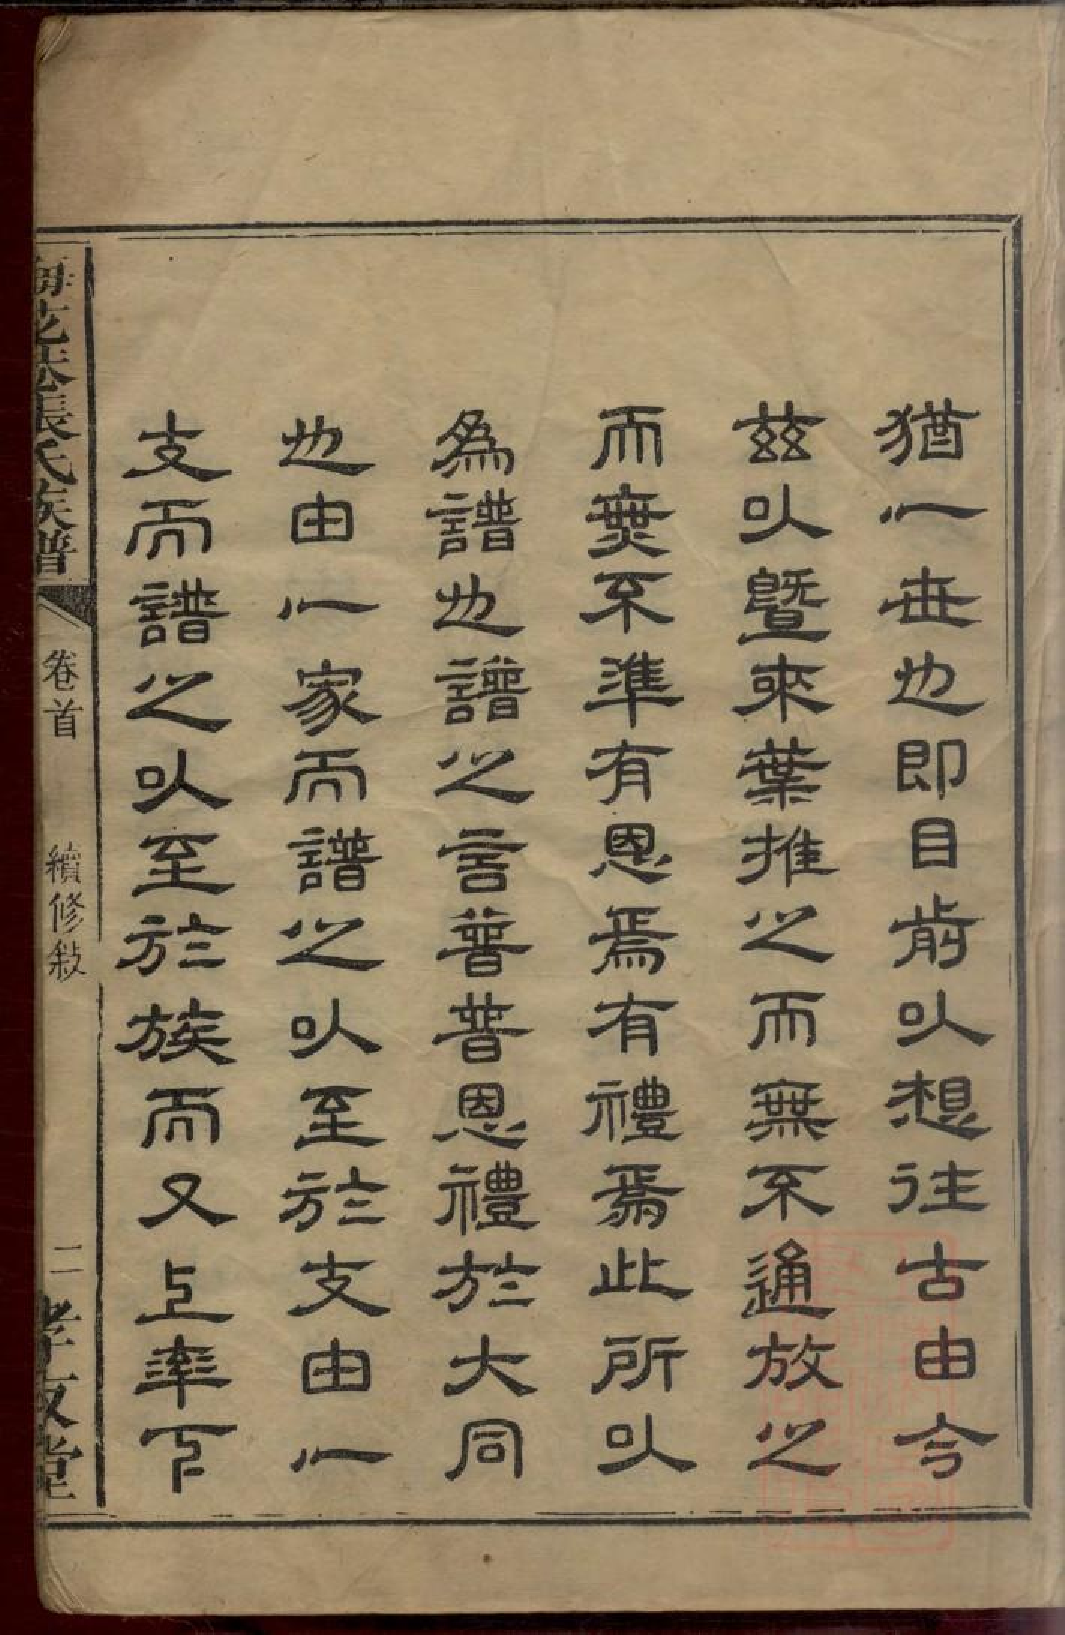 猶一世也即目前以想往古由今
茲以暨來葉推之而無不通放之
而無不準有恩焉有禮焉此所以
為譜也譜之言普普恩禮於大同
也由一家而譜之以至於支由一
支而譜之以至於族而又上率下
張氏族譜
卷首
續修敍
二
孝友堂